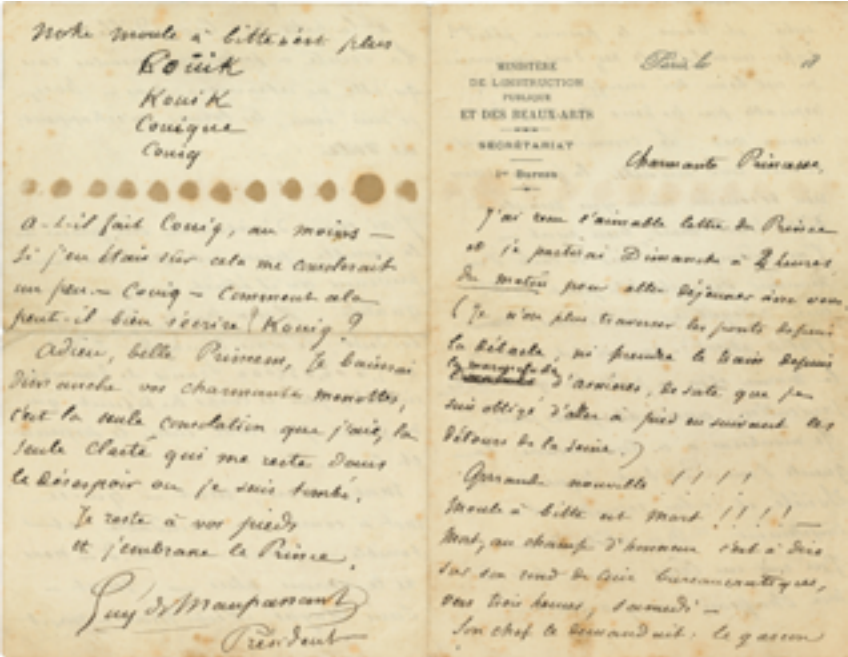 Notre moule à bitte n'est plus
Coüik
Kouik
Couique
Couiq
A-t-il fait Couiq, au moins —
Si j'en étais sûr cela me consolerait
un peu — Couiq — Comment cela
peut-il bien s'écrire ? Kouig ?
Adieu, belle Princesse, Je baiserai
dimanche vos charmantes menottes,
c'est la seule consolation que j'aie, la
seule clarté qui me reste dans
le désespoir où je suis tombé.
Je reste à vos pieds
et j'embrasse le Prince.
Guy de Maupassant
Président
MINISTÈRE
DE L'INSTRUCTION
PUBLIQUE
ET DES BEAUX-ARTS
SECRÉTARIAT
1er BUREAU
Paris le 18
Charmante Princesse,
J'ai reçu l'aimable lettre du Prince
et je partirai Dimanche à 2 heures
du matin pour aller déjeuner avec vous.
(Je n'ose plus traverser les ponts depuis
la débâcle, ni prendre le train depuis
d'asnières, de sorte que je
suis obligé d'aller à pied en suivant les
détours de la Seine.)
Grrrande nouvelle ! ! ! !
Moule à bitte est mort ! ! ! ! —
Mort, au champ d'honneur c'est à dire
sur son rond de cuir bureaucratique,
vers trois heures, samedi —
Son chef le demandait : le garçon